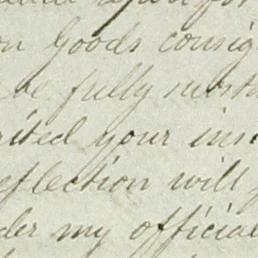 on Goods consig
be fully
ited your ins
eflection will
der my official